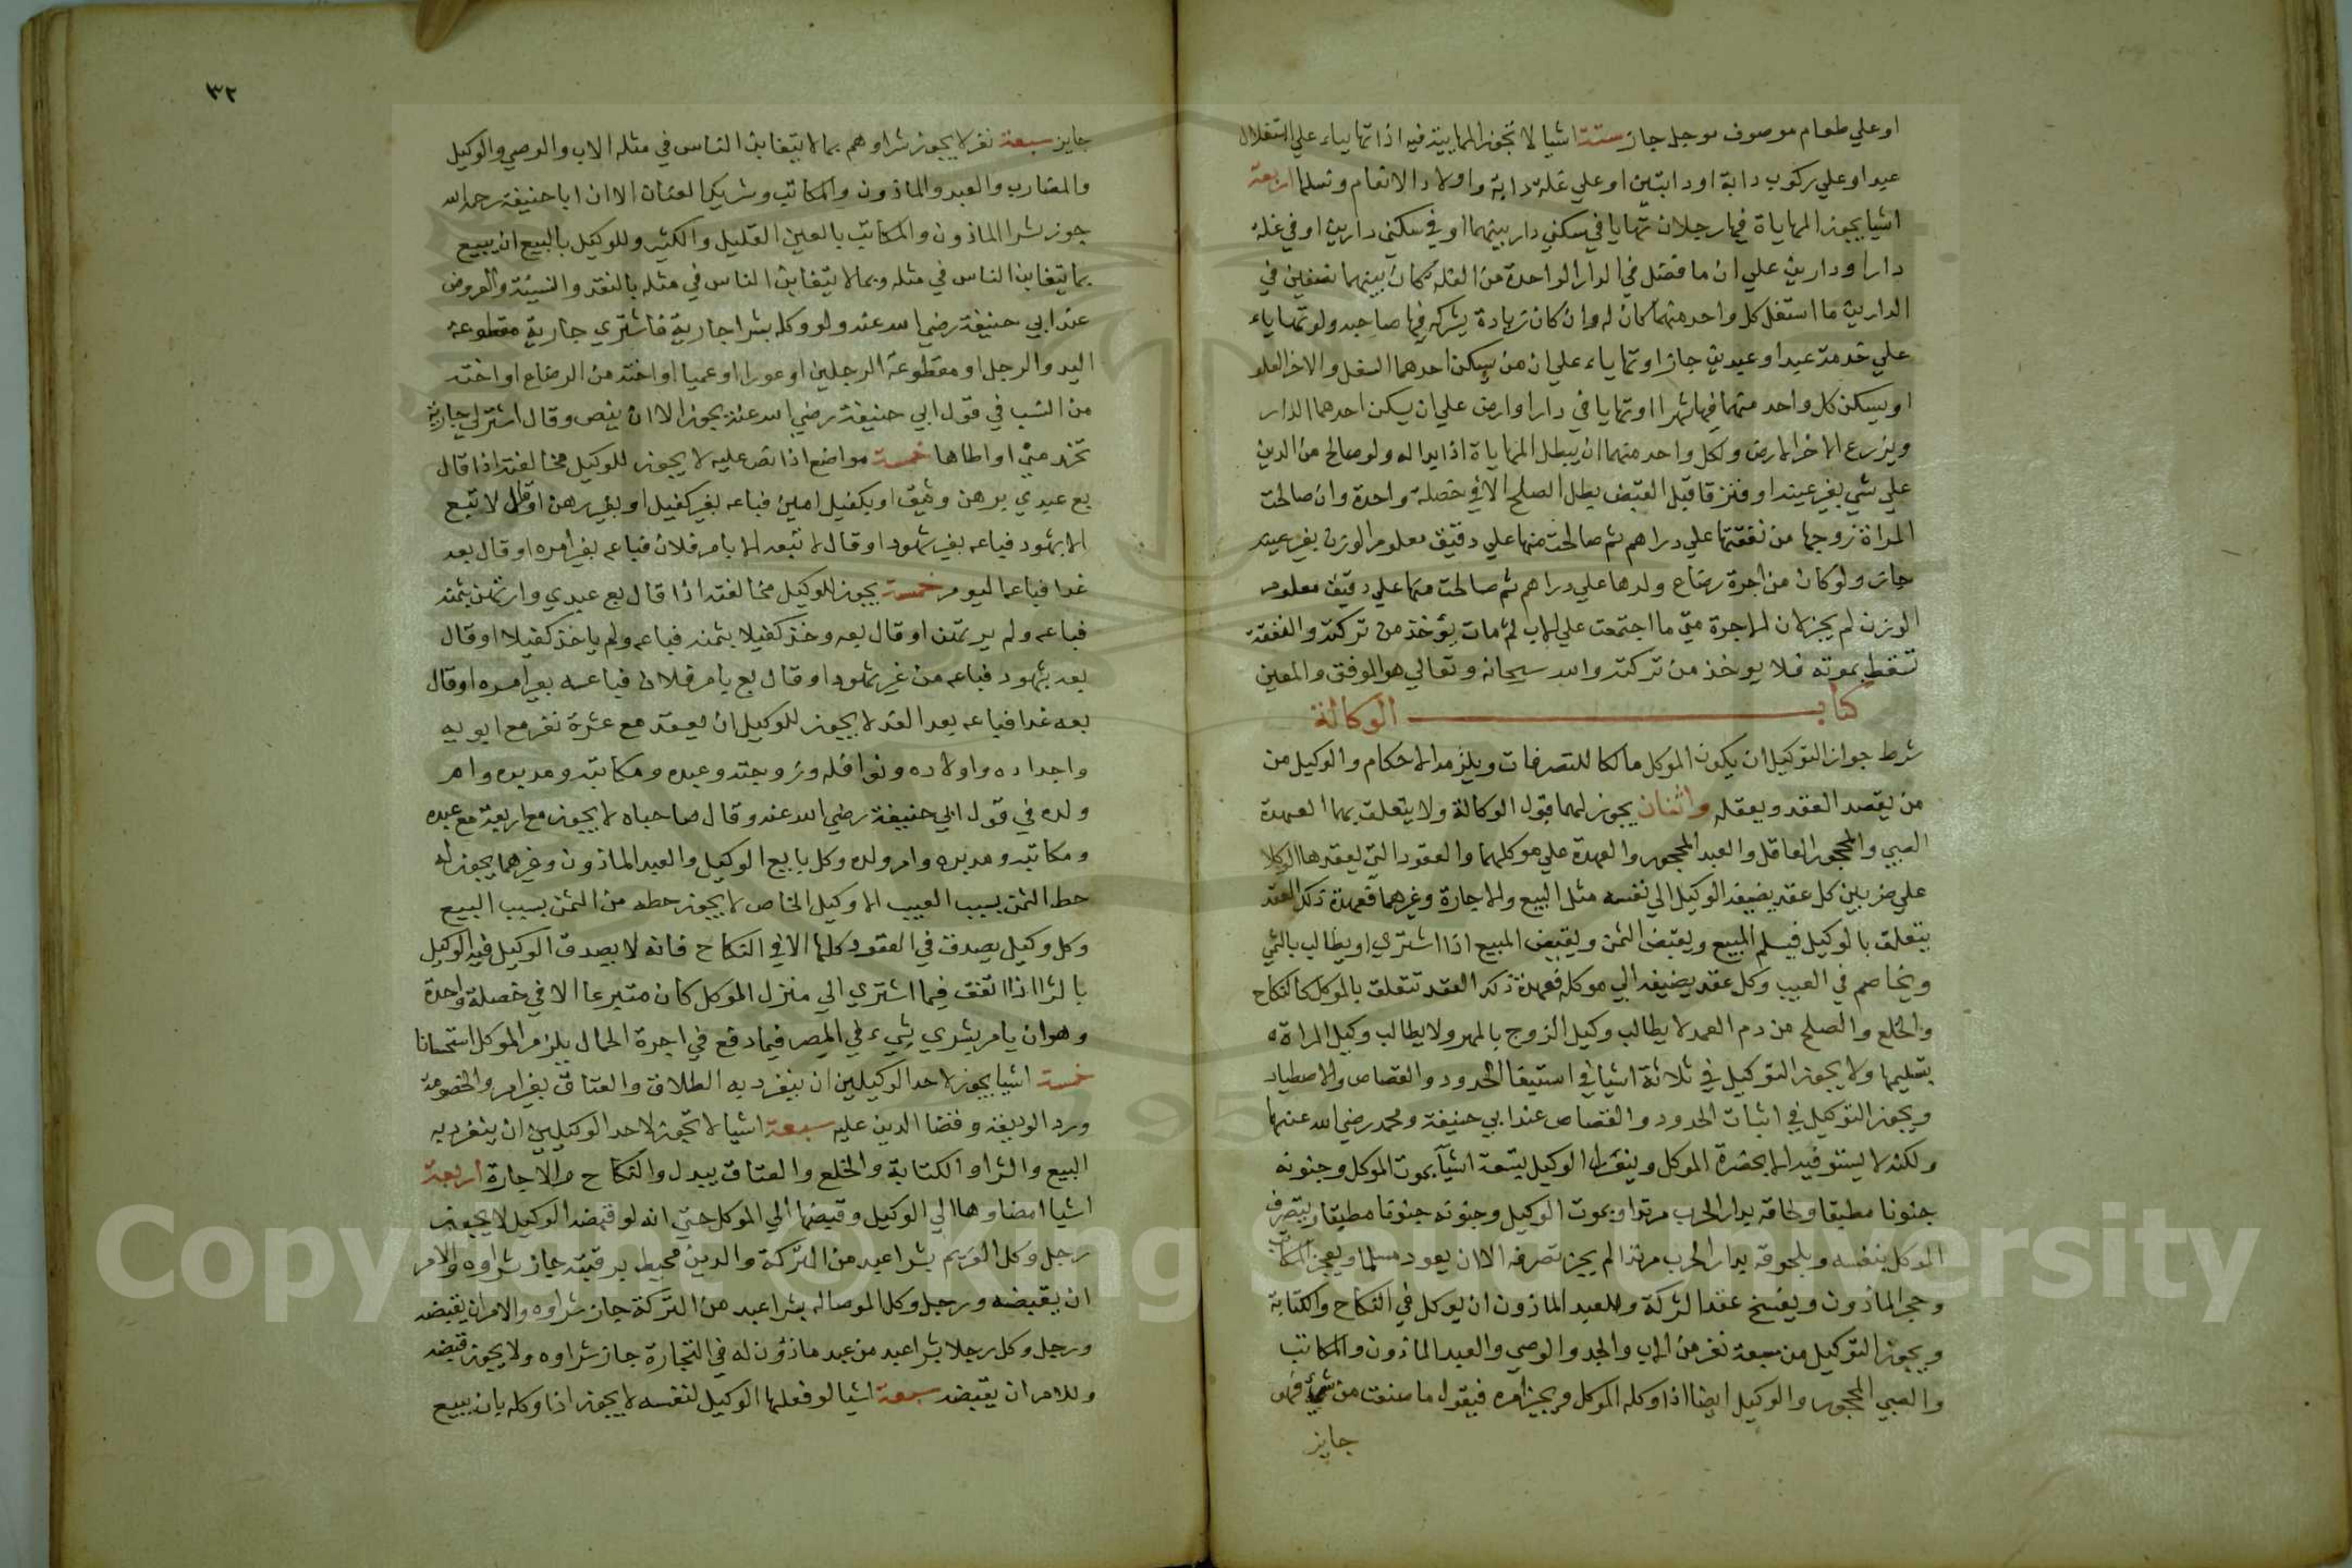 او علي طعام موصوف موجل جاز ستة اشيا لا تجوز المهايية فيه اذا تهاياء علي استغلال
عبد او علي ركوب دابة او دابتين او علي غلة دابة واولاد الانعام ونسلها اربعة
اشيا يجوز المهاياة فيها رجلان تهايا في سكني دار بينهما او في سكني دارين او في غله
دار او دارين علي ان ما فضل في الدار الواحدة من الغلة كان بينهما نصفين في
الدارين ما استغل كل واحد منهما كان له وان كان زيادة يشركه فيها صاحبه ولو تهاياء
علي خدمة عبد او عبدين جاز او تهاياء علي ان من يسكن احدهما السفل والاخر العلو
او يسكن كل واحد منهما فيها شهرا او تهايا في دار او ارض علي ان يسكن احدهما الدار
ويزرع الاخر الارض ولكل واحد منهما ان يبطل المهاياة اذا بدا له ولو صالح من الدين
علي شي بغير عينه او فتزقا قبل القبض بطل الصلح الا في خصلة واحدة وان صالحت
المراة زوجها من نفقتها علي دراهم ثم صالحت منها علي دقيق معلوم الوزن بغير عينه
جاز ولو كان من اجرة رضاع ولدها علي دراهم ثم صالحت منها علي دقيق معلوم
الوزن لم يجز لان الاجرة متي ما اجتمعت علي الاب ثم مات يؤخذ من تركته والنفقة
تسقط بموته فلا يوخذ من تركته والله سبحانه وتعالي هو الموفق والمعين
كتاب الوكالة
شرط جواز التوكيل ان يكون الموكل مالكا للتصرفات ويلزمه الاحكام والوكيل من
من يقصد العقد ويعقله واثنان يجوز لهما قبول الوكالة ولا يتعلق بهما العهدة
الصبي والمحجور العاقل والعبد المحجور والعهدة علي موكلهما والعقود التي يعقدها الوكلا
علي ضربين كل عقد يضيفه الوكيل الي نفسه مثل البيع والاجارة وغيرهما فعهدة ذلك العقد
يتعلق بالوكيل فيسلم المبيع ويقبض الثمن ويقبض المبيع اذا اشتري او يطالب بالثمن
ويخاصم في العيب وكل عقد يضيفه الي موكله فعهدة ذلك العقد تتعلق بالموكل كالنكاح
والخلع والصلح من دم العمد لا يطالب وكيل الزوج بالمهر ولا يطالب وكيل المراة
بتسليمها ولا يجوز التوكيل في ثلاثة اشيا في استيفا الحدود والقصاص والاصطياد
ويجوز التوكيل في اثبات الحدود والقصاص عند ابي حنيفة ومحمد رضي الله عنهما
ولكنه لا يستوفيه الا بحضرة الموكل وينعزل الوكيل بتسعة اشيا بموت الموكل وجنونه
جنونا مطبقا ولحاقه بدار الحرب مرتدا وبموت الوكيل وجنونه جنونا مطبقا وبتصرف
الموكل بنفسه وبلحوقه بدار الحرب مرتدا لم يجز تصرفه الا ان يعود مسلما وبعجز المكاتب
وحجر الماذون وبفسخ عقد الشركة وللعبد الماذون ان يوكل في النكاح والكتابة
ويجوز التوكيل من سبعة نفر من الاب والجد والوصي والعبد الماذون والمكاتب
والصبي المحجور والوكيل ايضا اذا وكله الموكل ويجيز امره فيقول ما صنعت من شيء فهو
جايز
٣٢
جايز سبعة نفر لا يجوز شراوهم بما لا يتغابن الناس في مثله الاب والوصي والوكيل
والمضارب والعبد والماذون والمكاتب وشريك العنان الا ان ابا حنيفة رحمه الله
جوز شرا الماذون والمكاتب بالعين القليل والكثير وللوكيل بالبيع ان يبيع
بما يتغابن الناس في مثله وبما لا يتغابن الناس في مثله بالنقد والنسيئة والعروض
عند ابي حنيفة رضي الله عنه ولو وكله بشرا جارية فاشتري جارية مقطوعة
اليد والرجل او مقطوعة الرجلين او عورا او عميا او اخته من الرضاع او اخته
من النسب في قول ابي حنيفة رضي الله عنه يجوز الا ان ينص وقال اشتر لي جارية
تخدمني او اطاها خمسة مواضع اذا نص عليه لا يجوز للوكيل مخالفته اذا قال
بع عبدي برهن وثيق او بكفيل امين فباعه بغير كفيل او بغير رهن او قال لا تبع
الا بشهود فباعه بغير شهود او قال لا تبعه الا بامر فلان فباعه بغير امره او قال بعه
غدا فباعه اليوم خمسة يجوز للوكيل مخالفته اذا قال بع عبدي وارتهن بثمنه
فباعه ولم يرتهن او قال بعه وخذ كفيلا بثمنه فباعه ولم ياخذ كفيلا او قال
بعه بشهود فباعه من غير شهود او قال بع بامر فلان فباعه بغير امره او قال
بعه غدا فباعه بعد الغد لا يجوز للوكيل ان يعقد مع عشرة نفر مع ابويه
واجداده واولاده ونوافله وزوجته وعبده ومكاتبه ومدبره وام
ولده في قول ابي حنيفة رضي الله عنه وقال صاحباه لا يجوز مع اربعة مع عبده
ومكاتبه ومدبره وام ولده وكل بايع الوكيل والعبد الماذون وغيرهما يجوز له
حط الثمن بسبب العيب الا وكيل الخاص لا يجوز حطه من الثمن بسبب البيع
وكل وكيل يصدق في العقود كلها الا في النكاح فانه لا يصدق الوكيل فيه الوكيل
بالشرا اذا انفق فيما اشتري الي منزل الموكل كان متبرعا الا في خصلة واحدة
وهو ان يامر بشري شيء في المصر فيما دفع في اجرة الحمال يلزم الموكل استحسانا
خمسة اشيا يجوز لاحد الوكيلين ان ينفرد به الطلاق والعتاق بغير امر والخصومة
ورد الوديعة وقضا الدين عليه سبعة اشيا لا تجوز لاحد الوكيلين ان ينفرد به
البيع والشرا والكتابة والخلع والعتاق ببدل والنكاح والاجارة اربعة
اشيا امضاوها الي الوكيل وقبضها الي الموكل حتي انه لو قبضه الوكيل لا يجوز
رجل وكل الغريم بشرا عبد من التركة والدين محيط برقبته جاز شراوه والامر
ان يقبضه ورجل وكل الموصا له بشرا عبد من التركة جاز شراوه والامر ان يقبضه
ورجل وكل رجلا بشرا عبد من عبد ماذون له في التجارة جاز شراوه ولا يجوز قبضه
وللامر ان يقبضه سبعة اشيا لو فعلها الوكيل لنفسه لا يجوز اذا وكله بان يبيع
Copyright © King Saud University